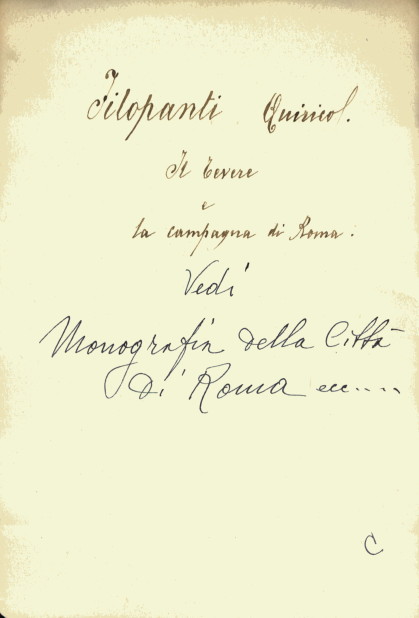 Filopanti Quirico.
Il Tevere
e
la campagna di Roma.
Vedi
Monografia della Città
di Roma ecc....
C